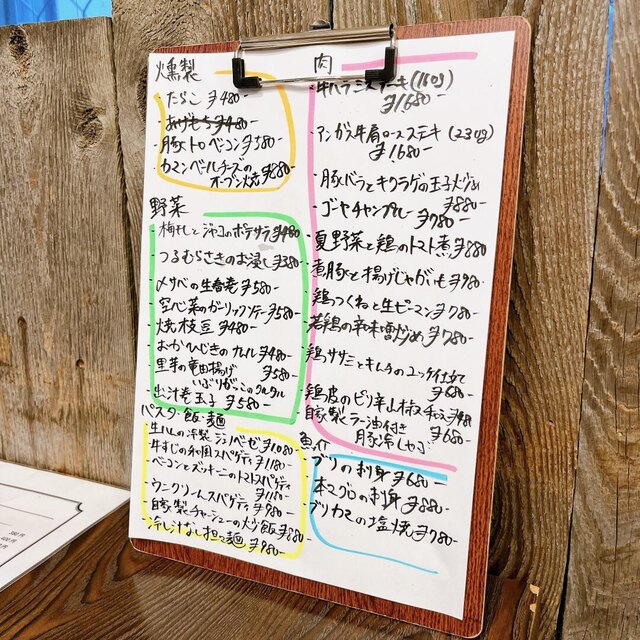 燻製
・たらこ ¥480-
・あげもち ¥480-
・豚トロベーコン ¥580-
・カマンベールチーズの
オーブン焼 ¥880-
野菜
・梅干しとジャコのポテサラ ¥480
・つるむらさきのお浸し ¥380-
・〆サバの生春巻 ¥580-
・空心菜のガーリックソテー ¥580-
・焼枝豆 ¥480-
・おかひじきのナムル ¥480-
・里芋の竜田揚げ ¥580-
いぶりがっこのタルタル
・出汁巻玉子 ¥580-
パスタ・飯・麺
・生ハムの冷製ジェノベーゼ ¥1080-
・牛すじの和風スパゲティ ¥1180-
・ベーコンとズッキーニのトマトスパゲティ
¥1180-
・ウニクリームスパゲティ ¥980-
・自家製チャーシューの炒飯 ¥880
・冷し汁なし担々麺 ¥980-
肉
・牛ハラミステーキ(160g)
¥1680-
・アンガス牛肩ロースステーキ(230g)
¥1680-
・豚バラとキクラゲの玉子炒め
¥880-
・ゴーヤチャンプルー ¥780-
・夏野菜と鶏のトマト煮 ¥880
・煮豚と揚げじゃがいも ¥980-
・鶏つくねと生ピーマン ¥780-
・若鶏の辛味噌炒め ¥780-
・鶏ササミとキムチのユッケ仕立て
¥680-
・鶏皮のピリ辛山椒和え ¥480
・自家製ラー油付き
豚冷しゃぶ ¥680-
魚介
・ブリの刺身 ¥680-
・本マグロの刺身 ¥880-
・ブリカマの塩焼 ¥780-